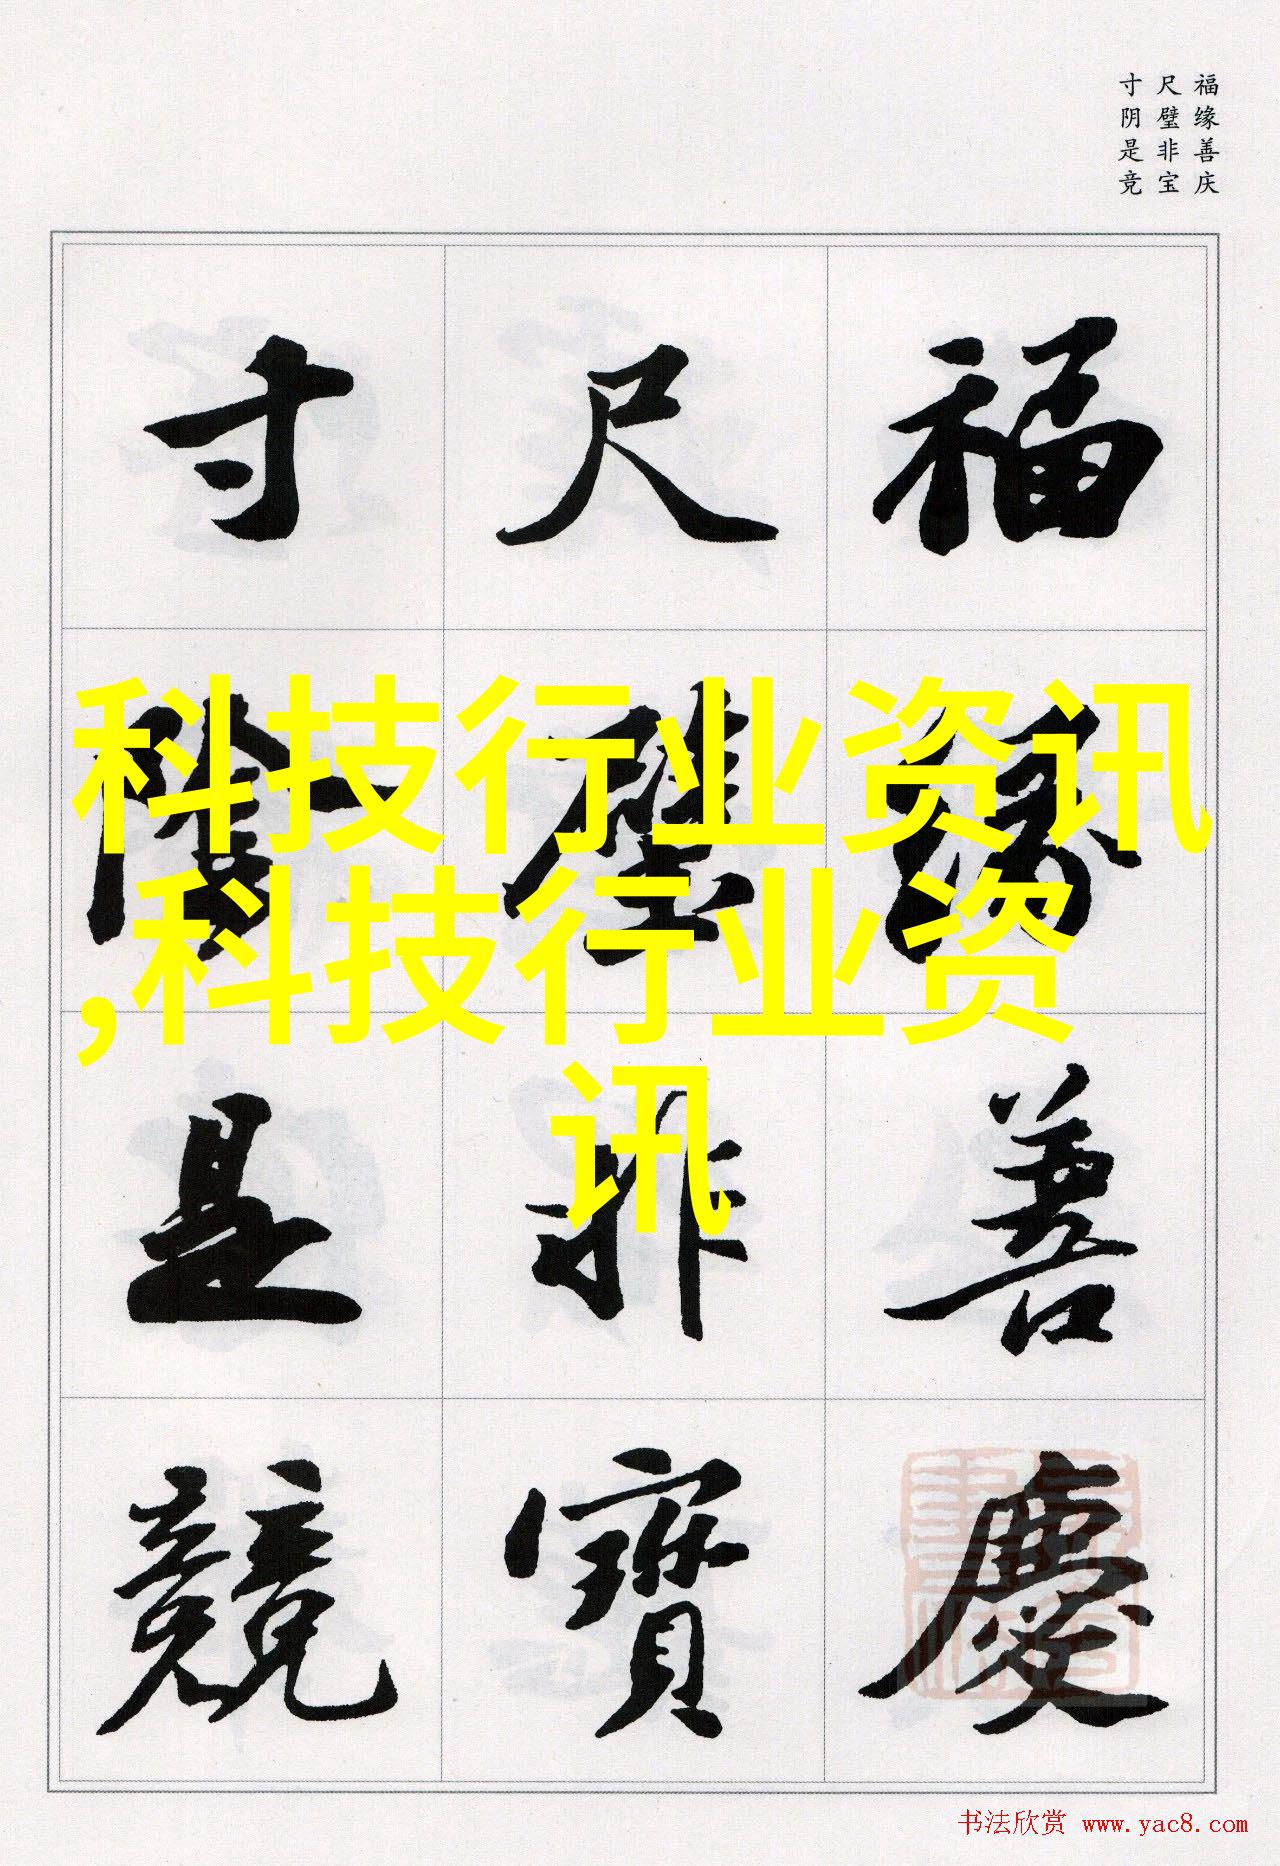 福缘善庆
尺璧非宝
寸阴是竞
福緣善慶
尺璧非寶
寸陰是競
科技行业资讯
,科技行业资
讯
书法欣赏 www.yac8.com